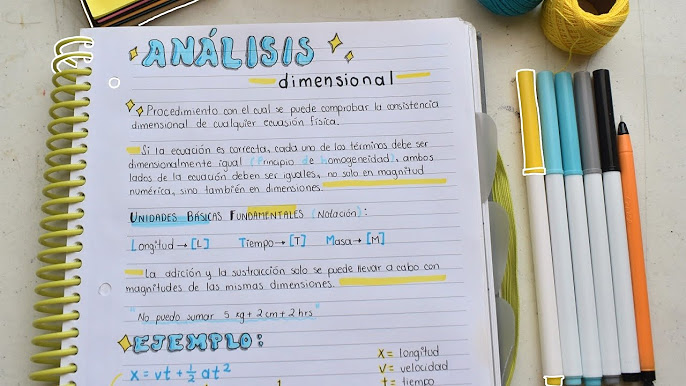 ANÁLISIS
dimensional
Procedimiento con el cual se puede comprobar la consistencia
dimensional de cualquier ecuasión física.
Si la ecuación es correcta, cada uno de los términos debe ser
dimensionalmente igual (Principio de homogeneidad), ambos
lados de la ecuación deben ser iguales, no solo en magnitud
numérica, sino también en dimensiones.
UNIDADES BÁSICAS FUNDAMENTALES (Notación):
Longitud → [L] Tiempo → [T] Masa → [M]
La adición y la sustracción solo se puede llevar a cabo con
magnitudes de las mismas dimensiones.
"No puedo sumar 5 kg + 2 cm + 2 hrs"
EJEMPLO:
x = vt + ½ at²
x = longitud
v = velocidad
t = tiempo